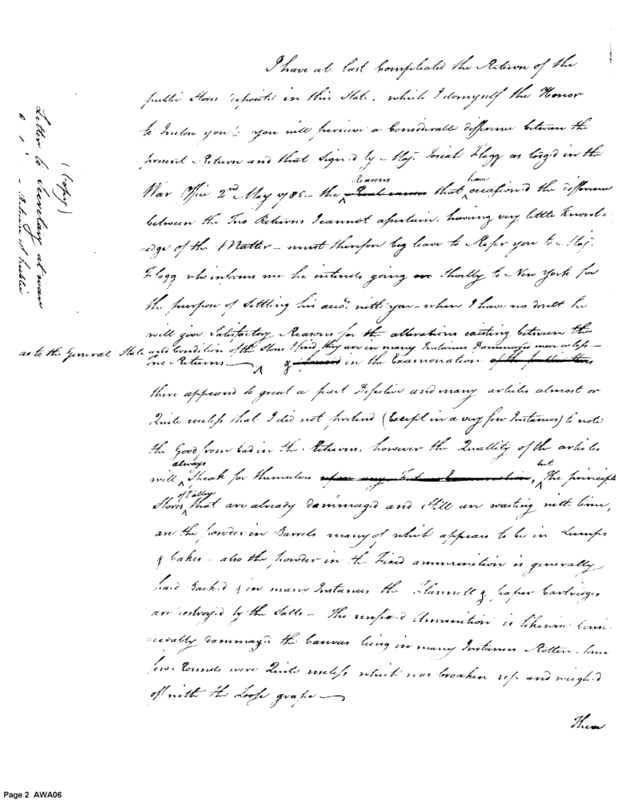 I have at last Compleated the Return of the
public Stores deposited in this State, which I do myself the Honor
to Inclose you - you will perceive a Considerable difference between the
present Return and that Signed by Maj. Josiah Flagg as lodg'd in the
Reasons have
War Office 2nd May 1785 - the that occasion'd the difference
between the Two Returns I cannot assertain, having very little Knowl-
edge of the Matter - must therefore beg leave to Refer you to Maj.
Flagg who informs me he intends going Shortly to New York for
the purpose of Settling his with you - when I have no doubt he
will give Satisfactory Reasons for the alterations existing between the
as to the General State and Condition of the Stores I find they are in many Instances Dammaged more or less -
Two Returns - & in the Examonation of the public Stores
there appeared so great a part Defective and many articles almost or
Quite useless that I did not pretend (Except in a very few Instances) to note
the Good from bad in the Returns, however the Quallity of the articles
always but
will Speak for themselves upon any Examonation, The principle
Stores that are already dammaged and Still are wasting with time,
are the powder in Barrels many of which appears to be in Lumps
& Cakes - also the powder in the Fixed ammunition is generally
hard Caked & in many Instances the Flannell & paper Cartridges
are destroyed by the Salts - The unfixed Ammunition is likewise Consi-
derably dammaged the Canvas being in many Instances Rotten - Some
few Rounds were Quite useless which was broaken up and weigh'd
off with the Loose grape -
These
(Copy)
Letter to Secretary at war
Return of public
Page 2 AWA06